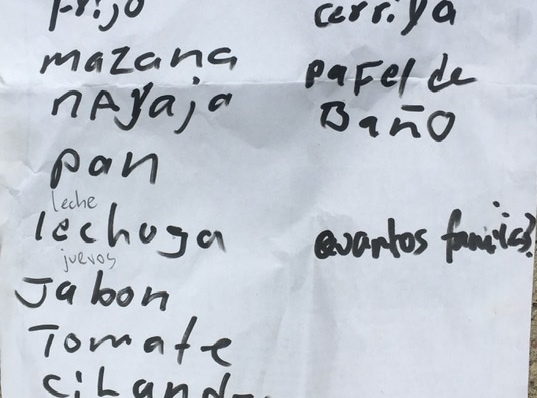 frijo
mazana
nAVaja
pan
leche
lechuga
juevos
Jabon
Tomate
cerriya
paFel de
Baño
quantos familias?